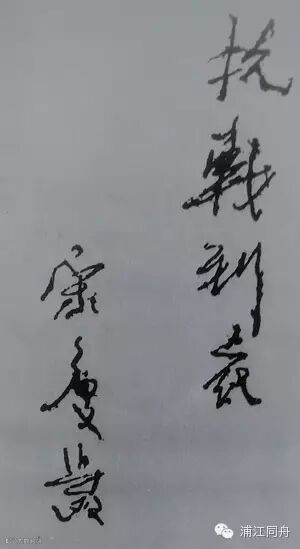 抗戰到底
宋慶齡
浦江同舟